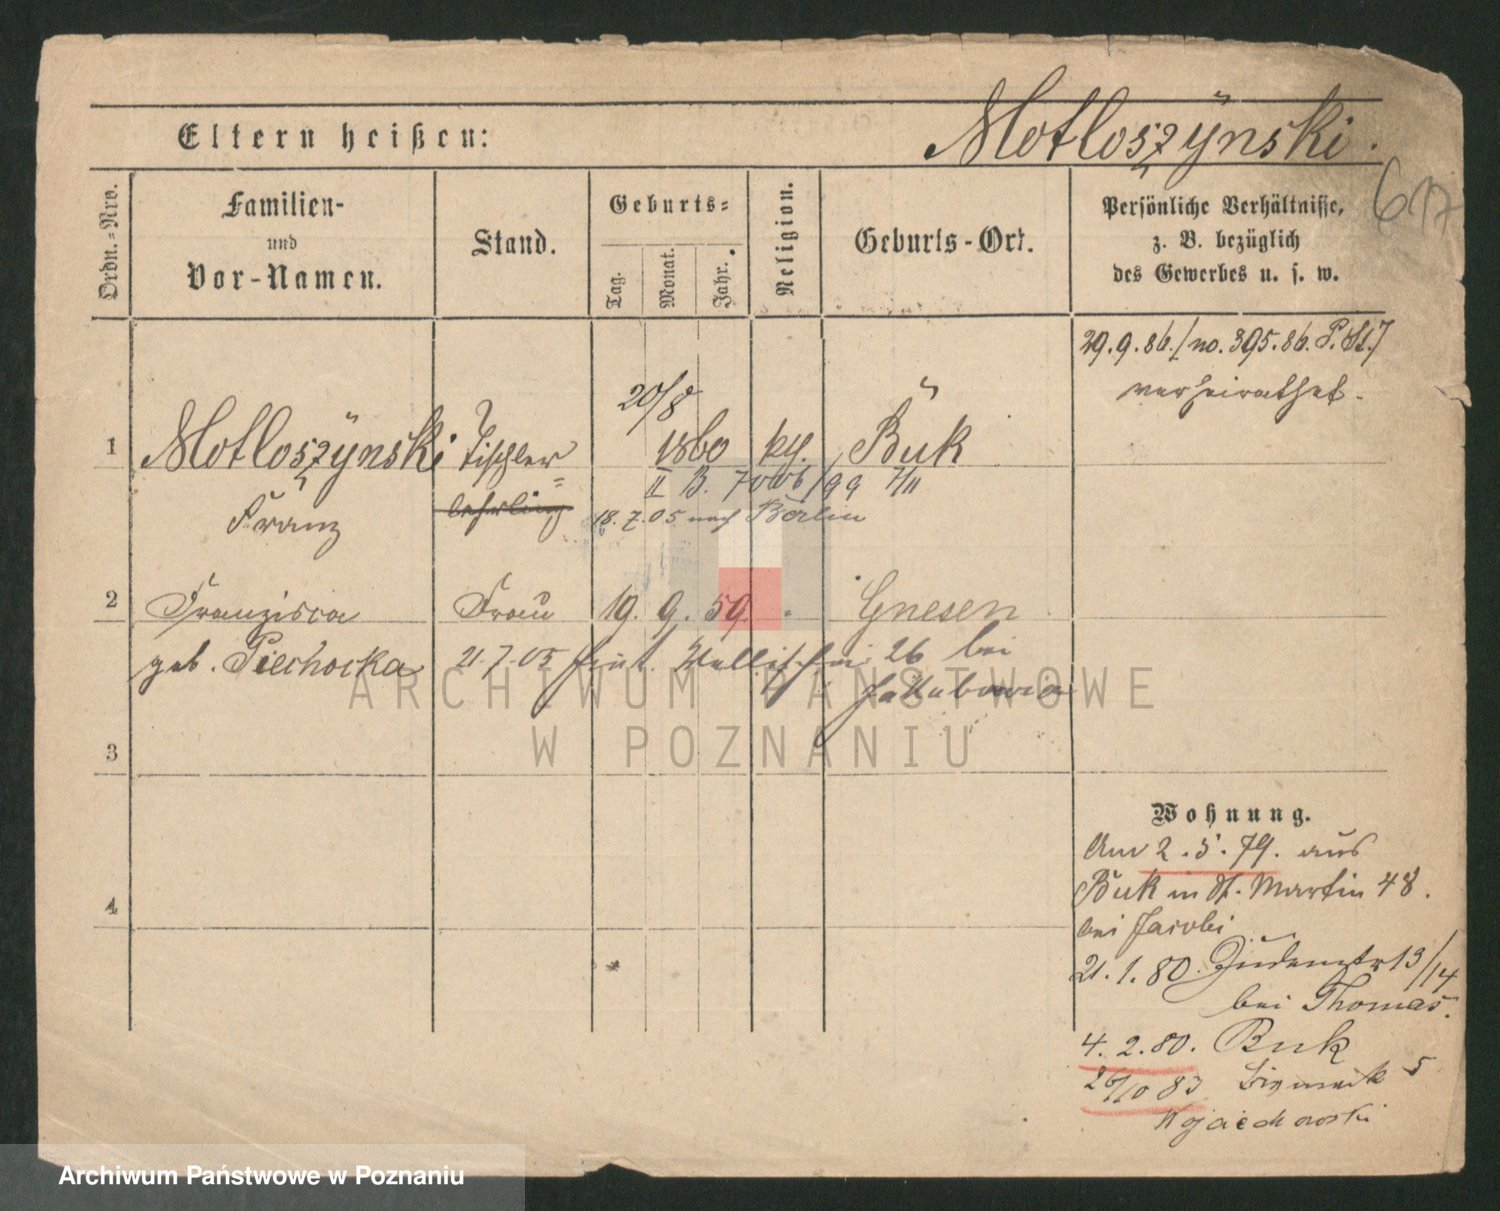 Eltern heißen:
Motloszÿnski.
617
Ordn.=Nro.
Familien-
und
Vor-Namen.
Stand.
Geburts=
Tag.
Monat.
Jahr.
Religion.
Geburts-Ort.
Persönliche Verhältnisse,
z. B. bezüglich
des Gewerbes u. s. w.
29.9.86./no. 395.86. P. St. J
verheirathet.
20/8
1 Motloszÿnski Tischler 1860 kth. Buk
Franz
lehrling
II B. 7006/99 7/11
18.7.05 nach Berlin
2 Franzisca Frau 19. 9. 59. Gnesen
geb. Piechocka 21.7.05 26 bei
Jakubowicz
3
4
Wohnung.
Am 2.5.79. aus
Buk in St. Martin 48.
bei Jacobi
21.1.80. Judenstr 13/14
bei Thomas.
4.2.80. Buk
26/10 83 Bismarck 5
Wojciechowski
ARCHIWUM PAŃSTWOWE
W POZNANIU
Archiwum Państwowe w Poznaniu